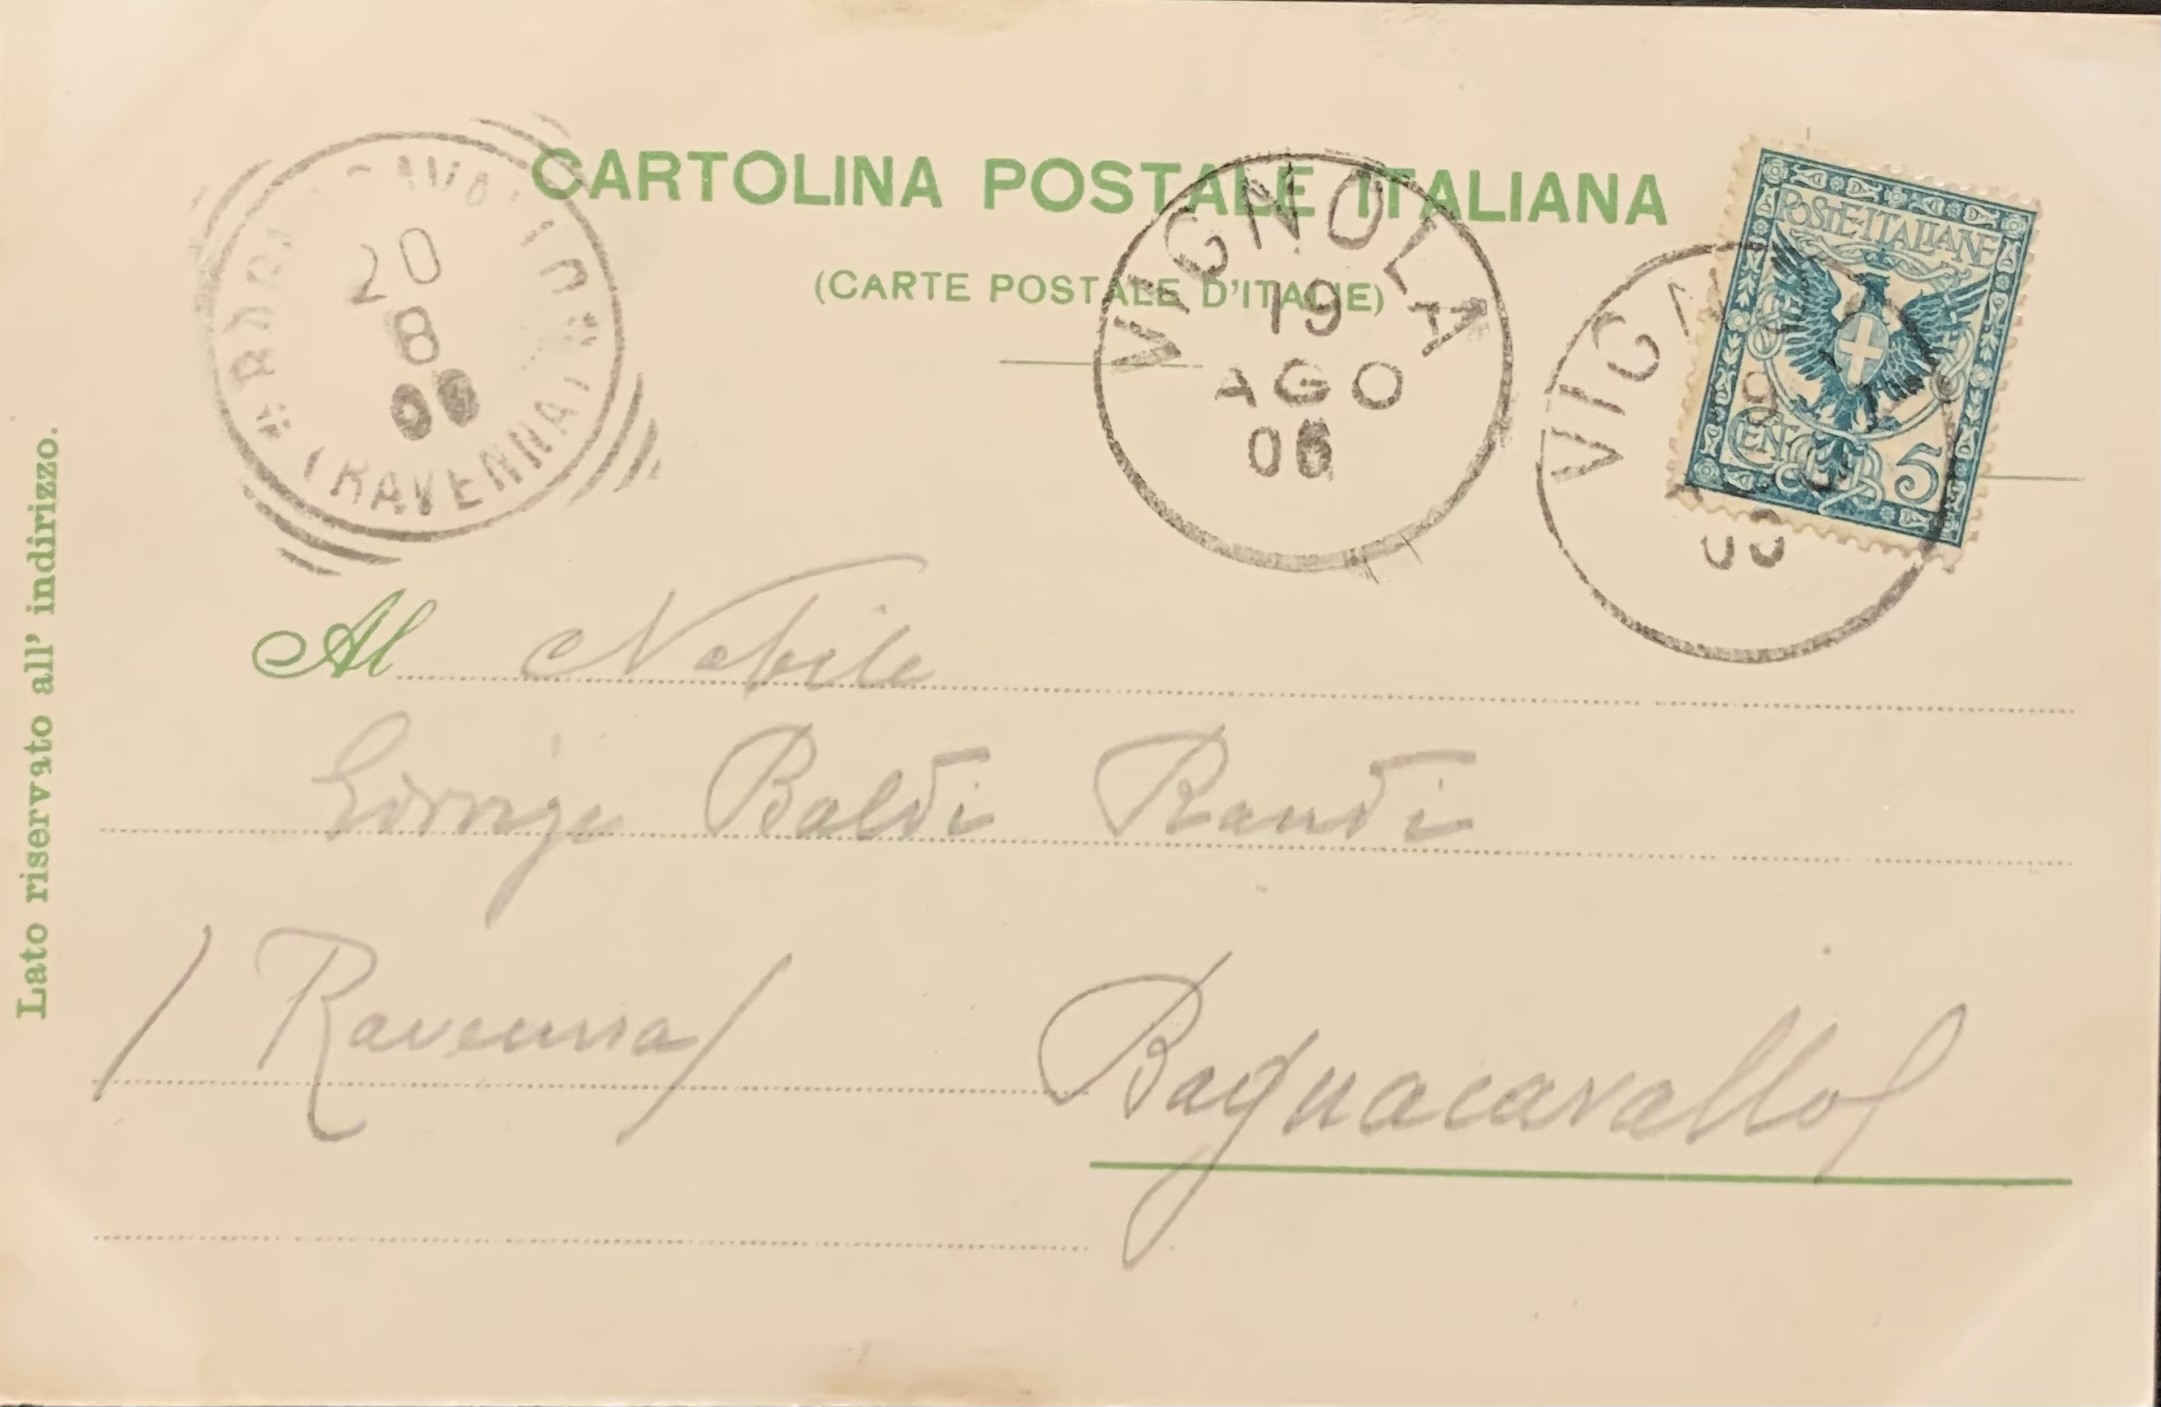 CARTOLINA POSTALE ITALIANA
(CARTE POSTALE D'ITALIE)
20
8
(RAVENNA)
VIGNOLA
19
AGO
06
POSTE·ITALIANE
CENT. 5
Lato riservato all' indirizzo.
Al Nobile
Baldi Randi
/Ravenna/
Bagnacavallo